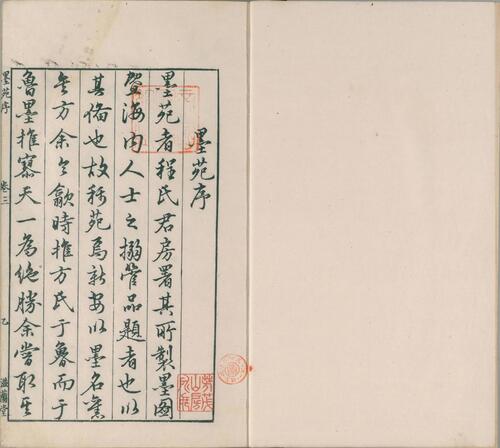 墨苑序
墨苑者程氏君房署其所製墨圖
暨海内人士之搦管品題者也以
其備也故稱苑焉新安以墨名舊
矣方余令歙時推方氏于魯而于
魯墨推寥天一為絶勝余嘗取其
墨苑序
卷三
乙
滋蘭堂